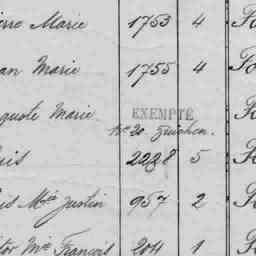 erre Marie 1753 4
an Marie 1755 4 Fo
guste Marie EXEMPTÉ
No 20.
uis 2228 5
is Mie Justin 957 2
tor Mie François 204 1